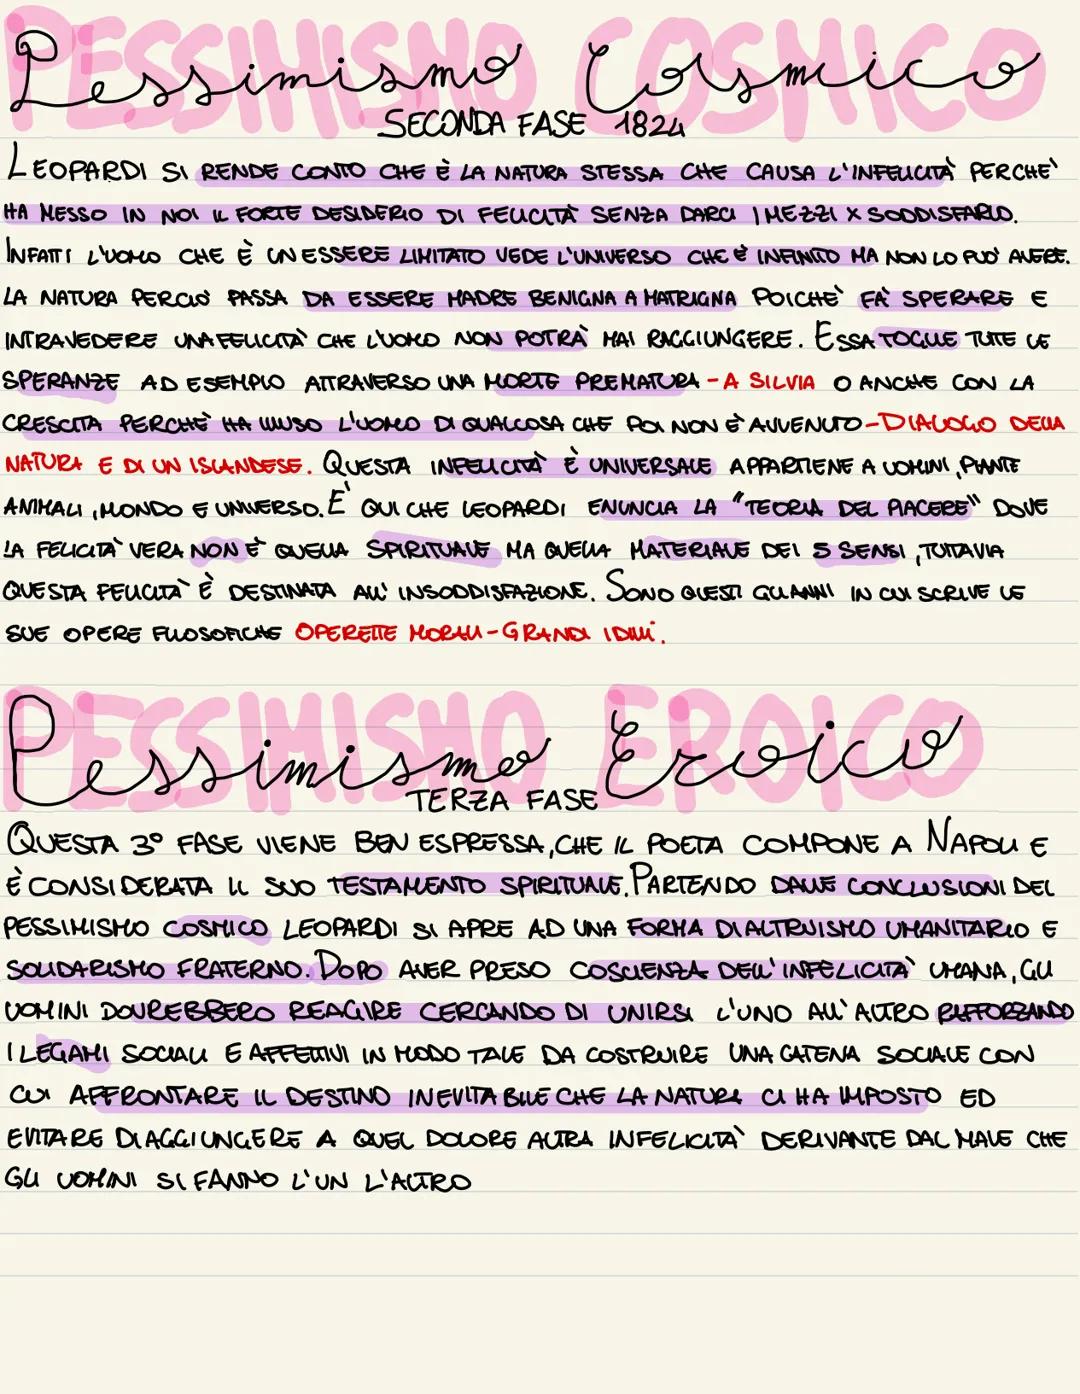 PESSIMISMO COSMICO
Pessimismo Cosmico
SECONDA FASE 1824
LEOPARDI SI RENDE CONTO CHE È LA NATURA STESSA CHE CAUSA L'INFELICITÀ PERCHE'
HA MESSO IN NOI IL FORTE DESIDERIO DI FELICITÀ SENZA DARCI I MEZZI X SODDISFARLO.
INFATTI L'UOMO CHE È UN ESSERE LIMITATO VEDE L'UNIVERSO CHE È INFINITO MA NON LO PUO' AVERE.
LA NATURA PERCIO' PASSA DA ESSERE MADRE BENIGNA A MATRIGNA POICHE' FA SPERARE E
INTRAVEDERE UNA FELICITÀ CHE L'UOMO NON POTRÀ MAI RAGGIUNGERE. ESSA TOGLIE TUTTE LE
SPERANZE AD ESEMPIO ATTRAVERSO UNA MORTE PREMATURA - A SILVIA O ANCHE CON LA
CRESCITA PERCHÈ HA ILLUSO L'UOMO DI QUALCOSA CHE POI NON È AVVENUTO - DIALOGO DELLA
NATURA E DI UN ISLANDESE. QUESTA INFELICITÀ È UNIVERSALE APPARTIENE A UOMINI, PIANTE
ANIMALI, MONDO E UNIVERSO. E' QUI CHE LEOPARDI ENUNCIA LA "TEORIA DEL PIACERE" DOVE
LA FELICITA' VERA NON È QUELLA SPIRITUALE MA QUELLA MATERIALE DEI 5 SENSI, TUTTAVIA
QUESTA FELICITÀ È DESTINATA ALL' INSODDISFAZIONE. SONO QUESTI GLI ANNI IN CUI SCRIVE LE
SUE OPERE FILOSOFICHE OPERETTE MORALI - GRANDI IDILLI.
PESSIMISMO EROICO
Pessimismo Eroico
TERZA FASE
QUESTA 3° FASE VIENE BEN ESPRESSA, CHE IL POETA COMPONE A NAPOLI E
È CONSIDERATA IL SUO TESTAMENTO SPIRITUALE. PARTENDO DALLE CONCLUSIONI DEL
PESSIMISMO COSMICO LEOPARDI SI APRE AD UNA FORMA DI ALTRUISMO UMANITARIO E
SOLIDARISMO FRATERNO. DOPO AVER PRESO COSCIENZA DELL'INFELICITA' UMANA, GLI
UOMINI DOVREBBERO REAGIRE CERCANDO DI UNIRSI L'UNO ALL'ALTRO RAFFORZANDO
I LEGAMI SOCIALI E AFFETTIVI IN MODO TALE DA COSTRUIRE UNA CATENA SOCIALE CON
CUI AFFRONTARE IL DESTINO INEVITABILE CHE LA NATURA CI HA IMPOSTO ED
EVITARE DI AGGIUNGERE A QUEL DOLORE ALTRA INFELICITA' DERIVANTE DAL MALE CHE
GLI UOMINI SI FANNO L'UN L'ALTRO